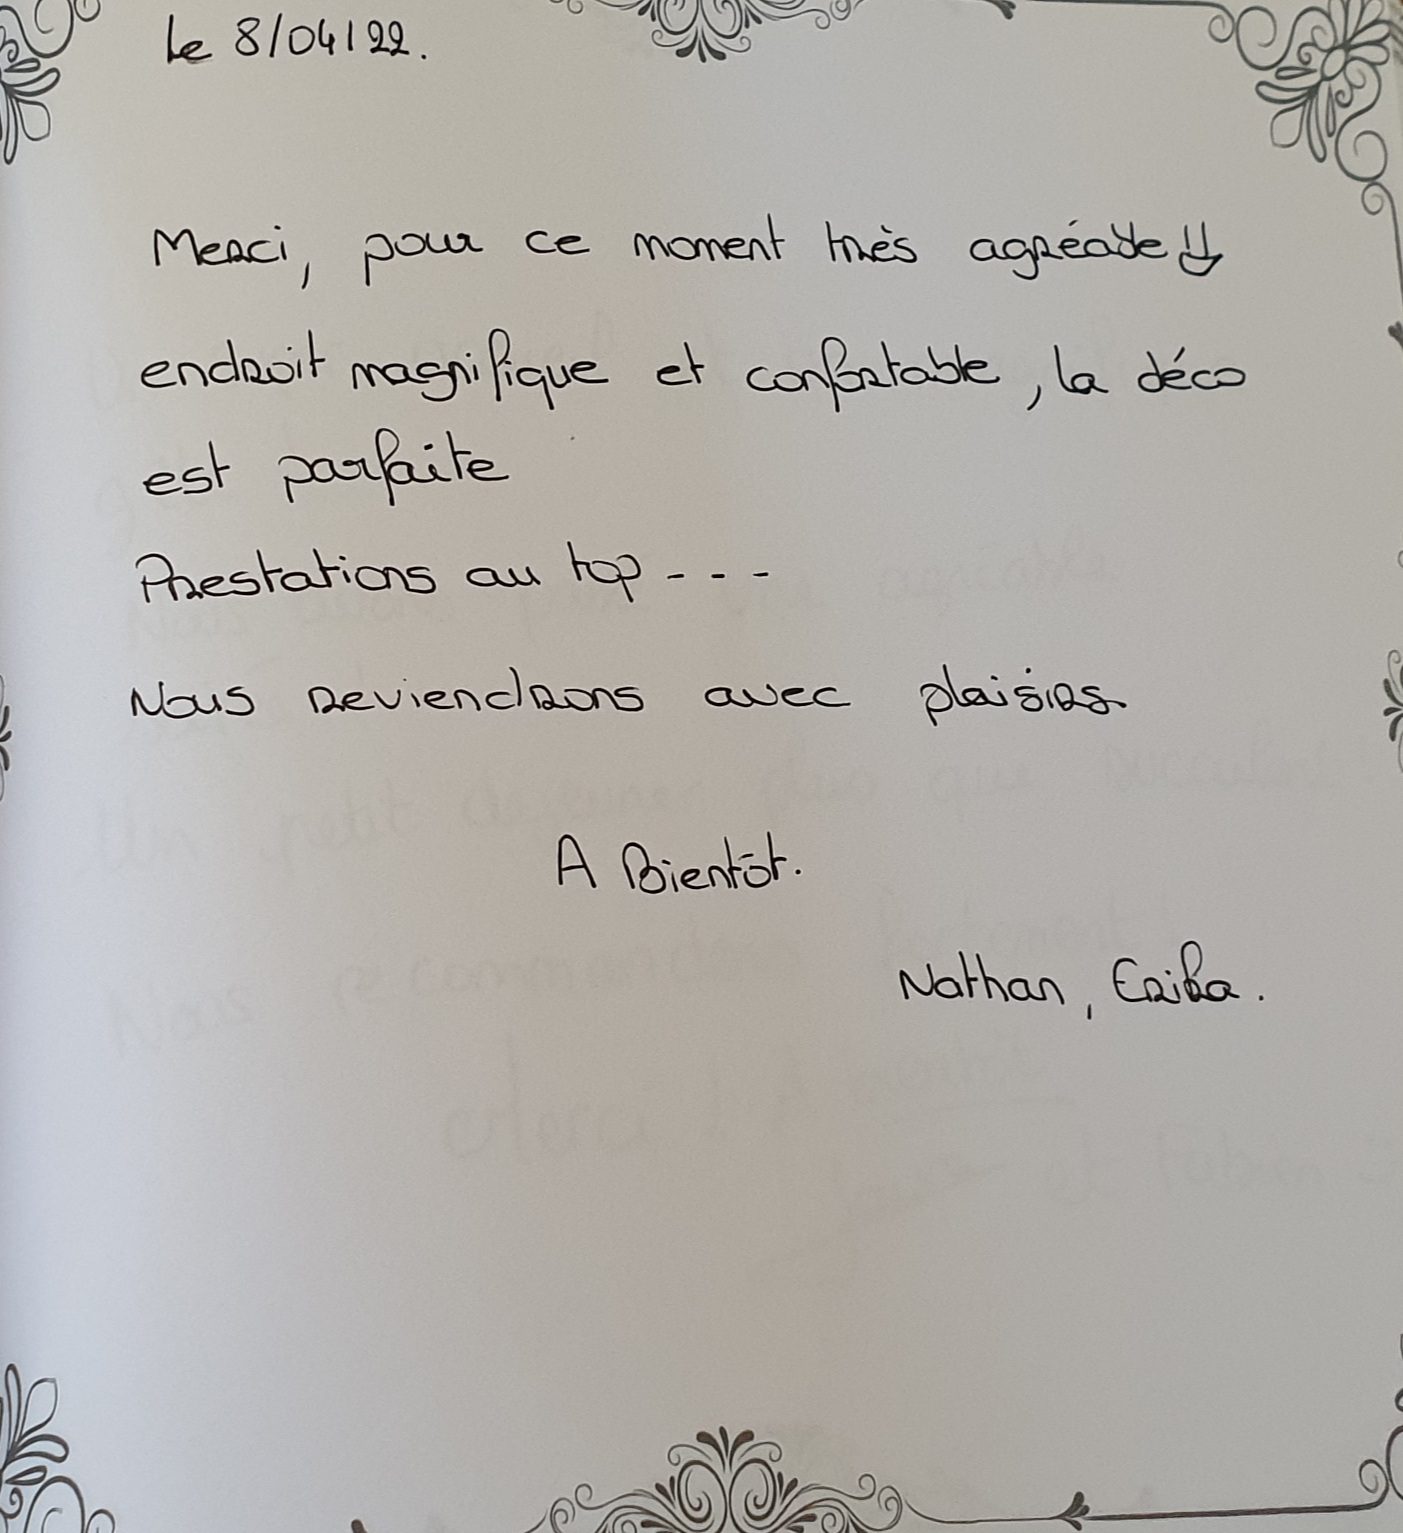 Le 8/04/22.
Merci, pour ce moment très agréable !!
endroit magnifique et confortable, la déco
est parfaite
Prestations au top - - -
Nous reviendrons avec plaisirs.
A Bientôt.
Nathan, Erika.